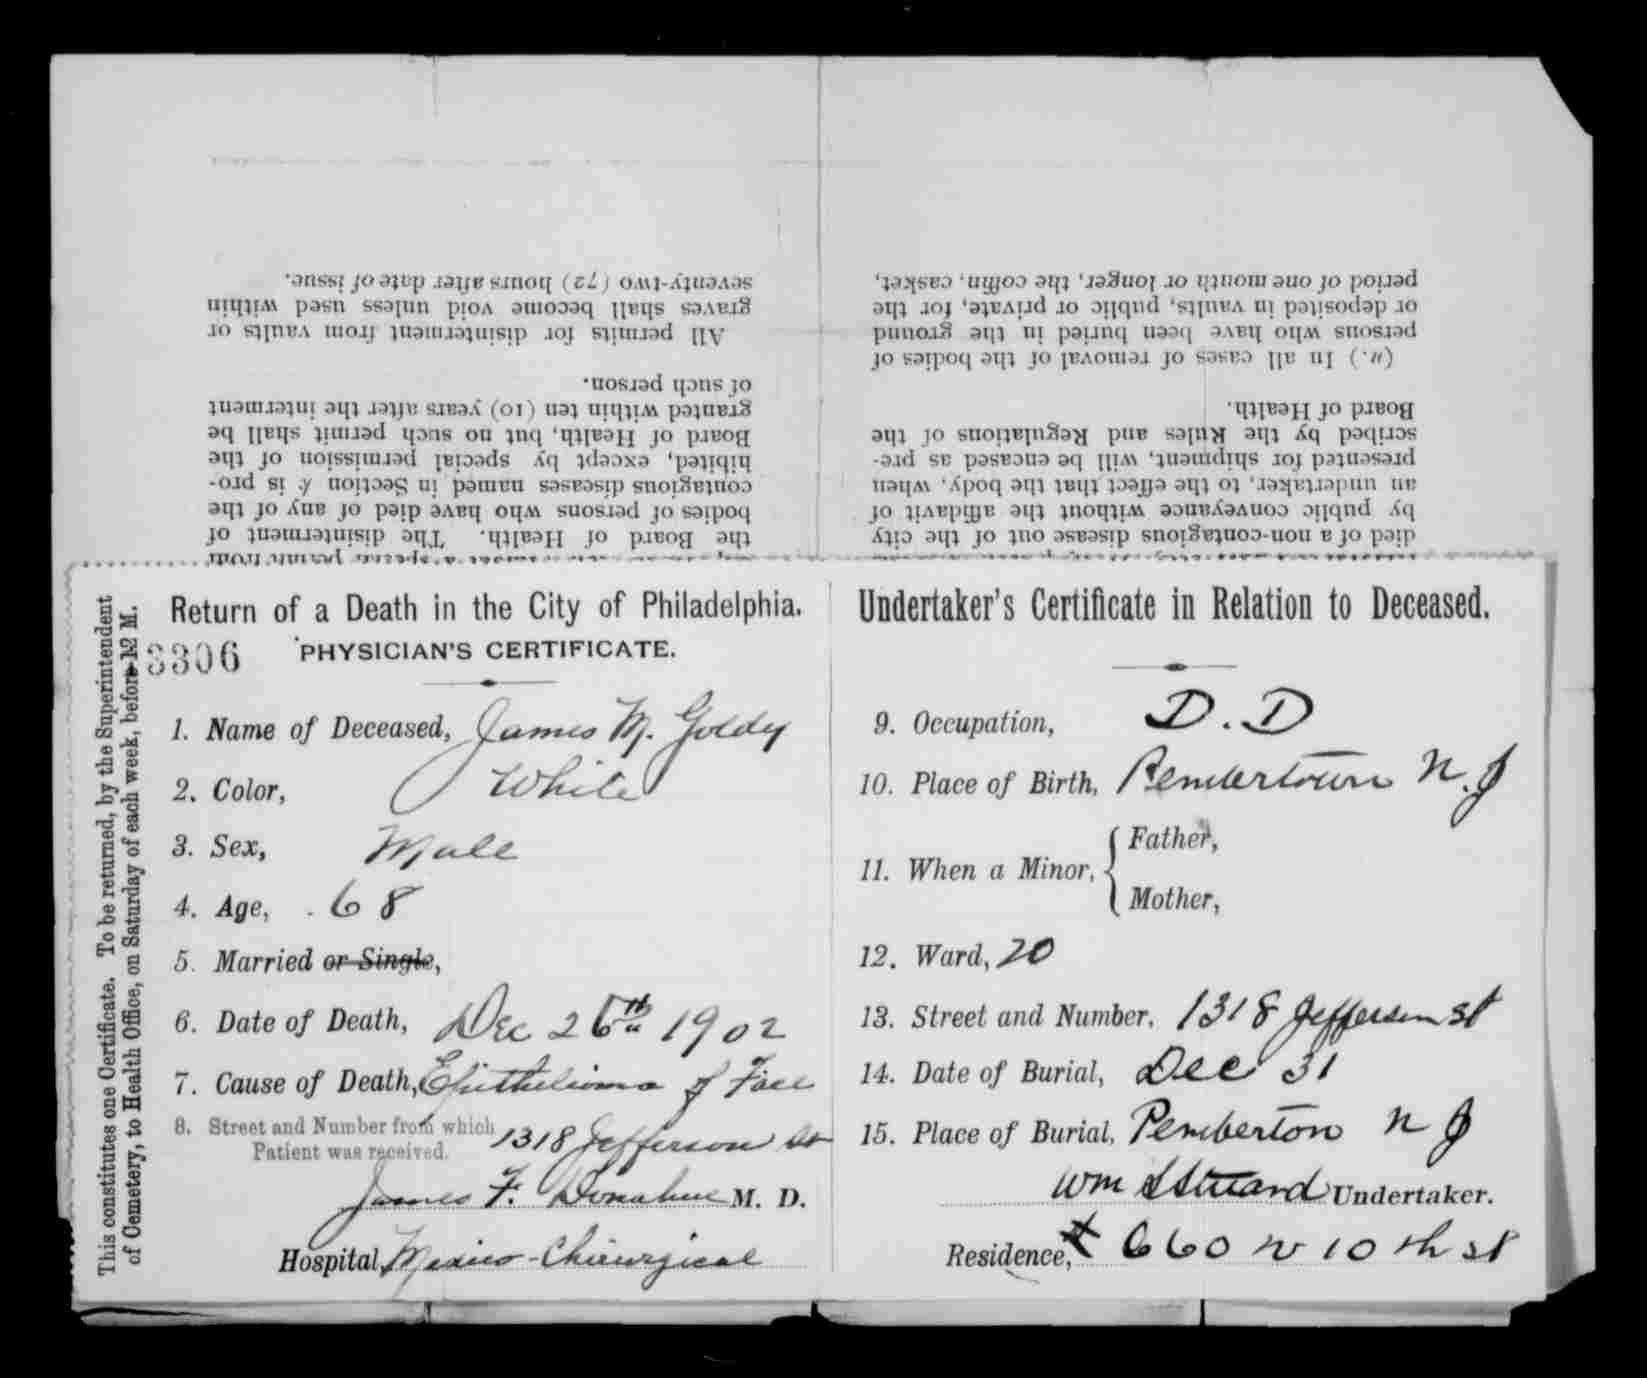 died of a non-contagious disease out of the city
by public conveyance without the affidavit of
an undertaker, to the effect that the body, when
presented for shipment, will be encased as pre-
scribed by the Rules and Regulations of the
Board of Health.
(a.) In all cases of removal of the bodies of
persons who have been buried in the ground
or deposited in vaults, public or private, for the
period of one month or longer, the coffin, casket,
the Board of Health. The disinterment of
bodies of persons who have died of any of the
contagious diseases named in Section is pro-
hibited, except by special permission of the
Board of Health, but no such permit shall be
granted within ten (10) years after the interment
of such person.
All permits for disinterment from vaults or
graves shall become void unless used within
seventy-two (72) hours after date of issue.
This constitutes one Certificate. To be returned, by the Superintendent
of Cemetery, to Health Office, on Saturday of each week, before 12 M.
Return of a Death in the City of Philadelphia.
3306
PHYSICIAN'S CERTIFICATE.
1. Name of Deceased, James M. Goldy
2. Color, White
3. Sex, Male
4. Age, 68
5. Married or Single,
6. Date of Death, Dec 26th 1902
7. Cause of Death, Epithelioma of Face
8. Street and Number from which
Patient was received. 1318 Jefferson St
James F. Donahue M. D.
Hospital, Medico-Chirurgical
Undertaker's Certificate in Relation to Deceased.
9. Occupation, D. D
10. Place of Birth, Pembertown N. J
11. When a Minor, { Father,
Mother,
12. Ward, 20
13. Street and Number, 1318 Jefferson st
14. Date of Burial, Dec 31
15. Place of Burial, Pemberton N J
Wm Undertaker.
Residence, 660 N 10th st